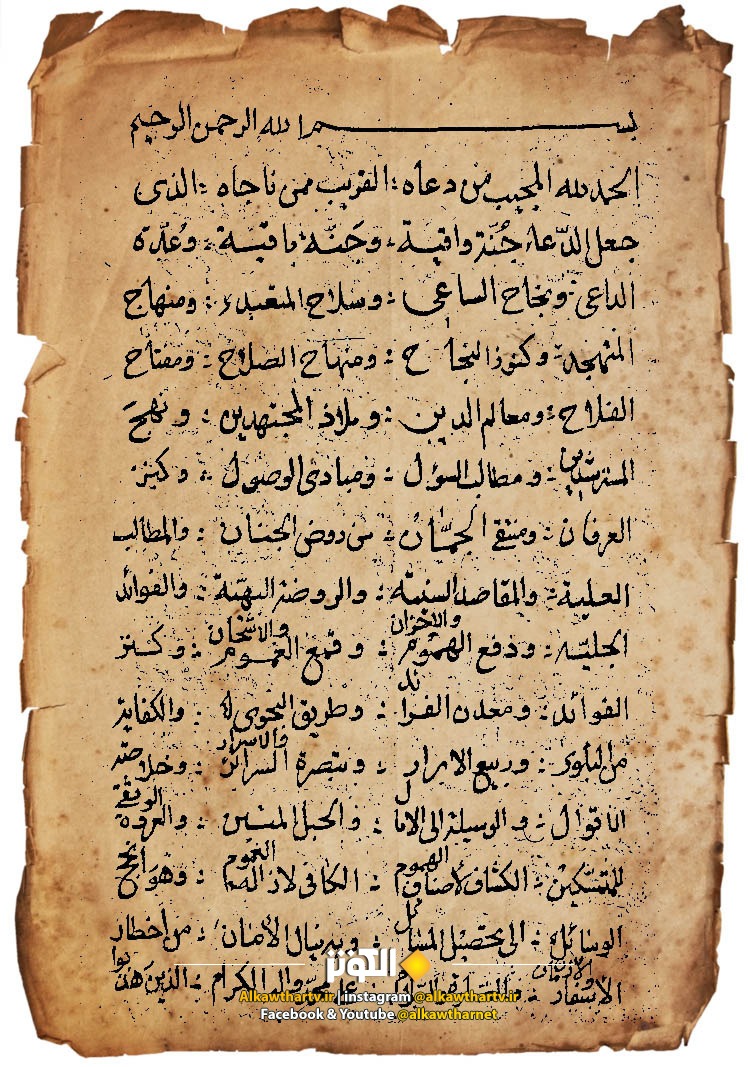 بسم الله الرحمن الرحيم
الحمد لله المجيب من دعاه : القريب ممن ناجاه : الذى
جعل الدعاء جُنّة واقية : وجَنّة باقية : وعُدّة
الداعى : ونجاح الساعى : وسلاح المتعبد : ومنهاج
المتهجد : وكنوز النجاح : ومنهاج الصلاح : ومفتاح
الفلاح : ومعالم الدين : وملاذ المجتهدين : ونهج
المسترشدين : ومطالب السؤل : ومبادى الوصول : وكنز
العرفان : ومنتقى الجمّان : من روض الجنان : والمطالب
العلية : والمقاصد السنية : والروضة البهيّة : والفوائد
الجليّة : ودفع الهموم والاحزان : وقمع الغموم والاشجان : وكنز
الفوائد : ومعدن الفرائد : وطريق النجوى : والكفاية
من البلوى : وربيع الابرار : وتبصرة السرائر والاسرار : وخلاصة
الاقوال : والوسيلة الى الامال : والحبل المتين : والعروة الوثقى
للمتمسكين : الكشاف لأصناف الهموم : الكافى لازالة الغموم : وهو انجح
الوسائل : الى تحصيل المسائل : وبه ينال الأمان : من اخطار
الاسفار والازمان : محمد واله الكرام : الذين هذبوا
الكوثر
Alkawthartv.ir | instagram @alkawthartv.ir
Facebook & Youtube @alkawtharnet